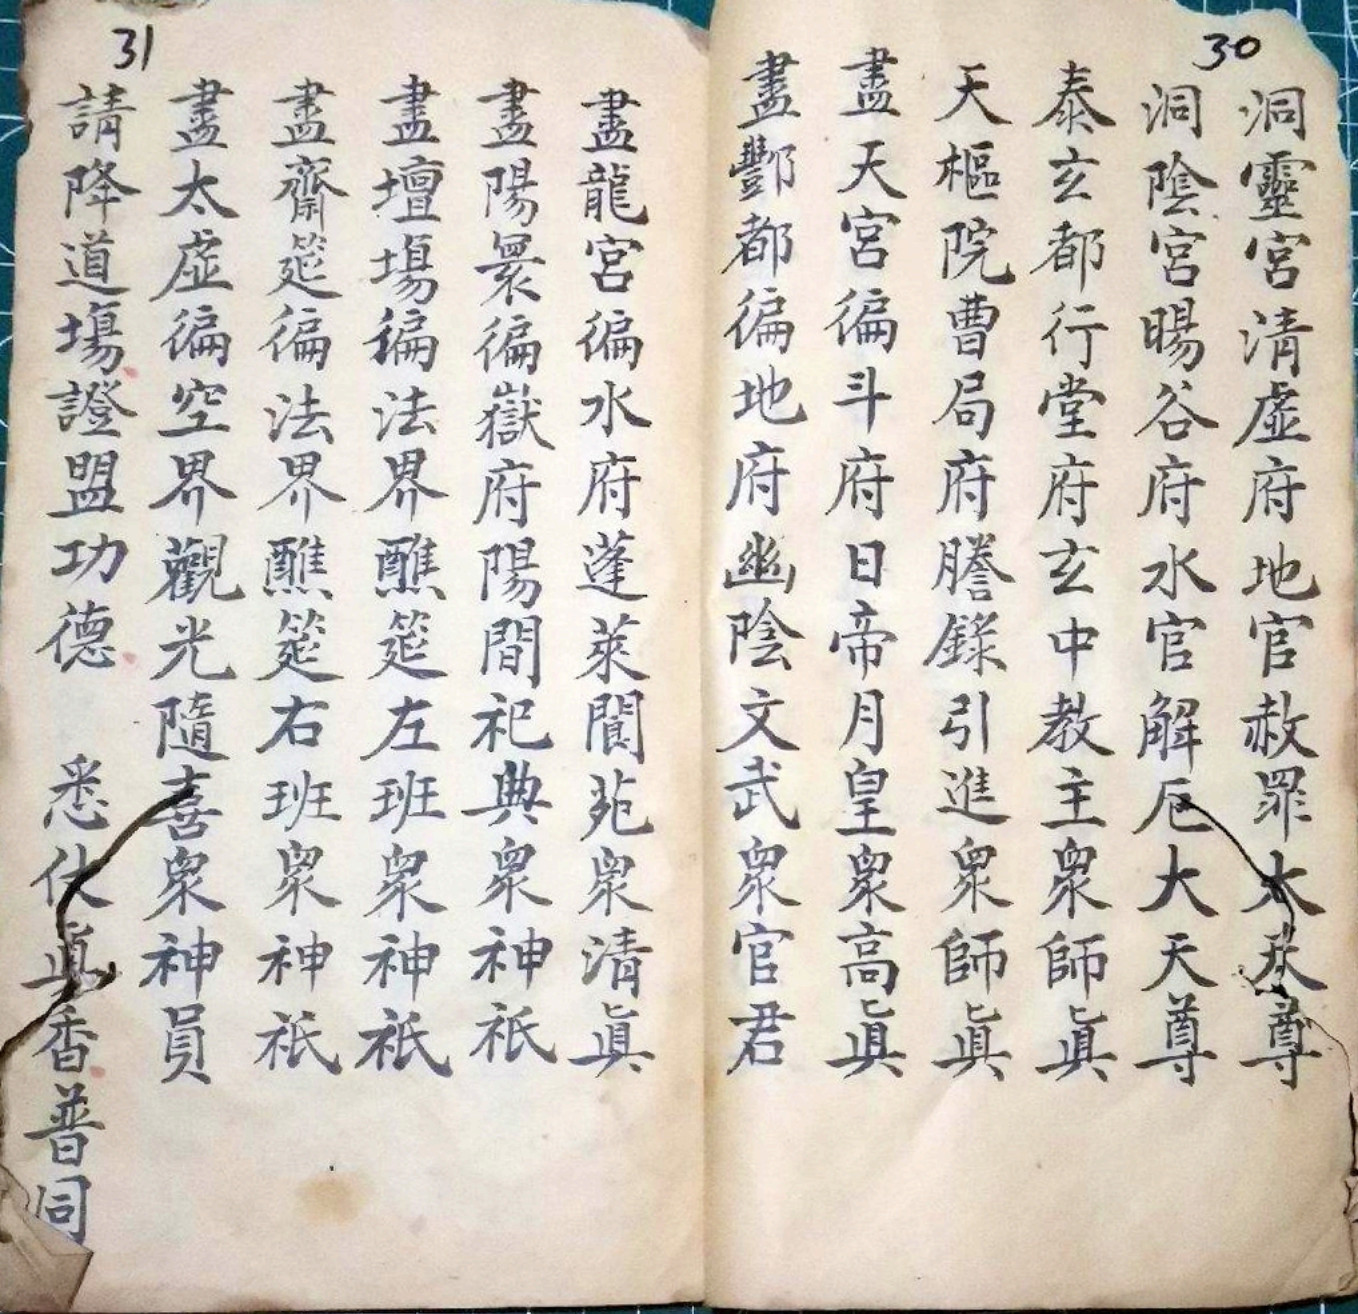 30
洞靈宮清虛府地官赦罪大天尊
洞陰宮暘谷府水官解厄大天尊
泰玄都行堂府玄中教主衆師眞
天樞院曹局府謄錄引進衆師眞
盡天宮徧斗府日帝月皇衆高眞
盡酆都徧地府幽陰文武衆官君
31
盡龍宮徧水府蓬萊閬苑衆清眞
盡陽寰徧嶽府陽間祀典衆神祇
盡壇場徧法界醮筵左班衆神祇
盡齋筵徧法界醮筵右班衆神祇
盡太虛徧空界觀光隨喜衆神員
請降道場證盟功德 悉仗眞香普同